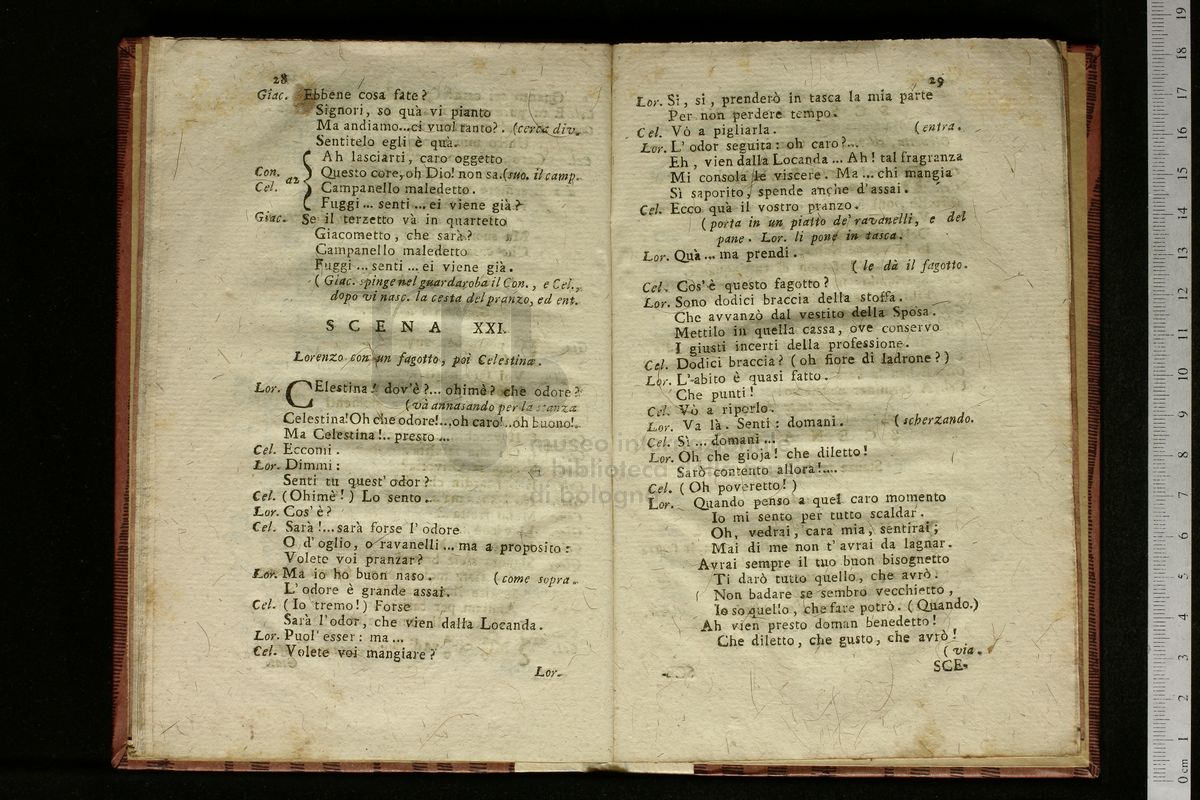 28
Giac. Ebbene cosa fate?
Signori, so quà vi pianto
Ma andiamo...ci vuol tanto?. (cerca div.
Sentitelo egli è quà.
Ah lasciarti, caro oggetto
Con. a2 Questo core, oh Dio! non sa.(suo. il camp.
Cel. Campanello maledetto.
Fuggi... senti... ei viene già?
Giac. Se il terzetto và in quartetto
Giacometto, che sarà?
Campanello maledetto
Fuggi... senti... ei viene già.
(Giac. spinge nel guardaroba il Con., e Cel.,
dopo vi nasc. la cesta del pranzo, ed ent.
SCENA XXI.
Lorenzo con un fagotto, poi Celestina.
Lor. CElestina! dov'è?... ohimè? che odore?
(và annasando per la stanza
Celestina!Oh che odore!...oh caro!..oh buono!.
Ma Celestina!.. presto...
Cel. Eccomi.
Lor. Dimmi:
Senti tu quest' odor?
Cel. (Ohimè!) Lo sento..
Lor. Cos' è?
Cel. Sarà!...sarà forse l' odore
O d' oglio, o ravanelli... ma a proposito:
Volete voi pranzar?
Lor. Ma io ho buon naso. (come sopra.
L' odore è grande assai.
Cel. (Io tremo!) Forse
Sarà l'odor, che vien dalla Locanda.
Lor. Puol' esser: ma...
Cel. Volete voi mangiare?
Lor.
29
Lor. Sì, si, prenderò in tasca la mia parte
Per non perdere tempo.
Cel. Vò a pigliarla. (entra.
Lor. L' odor seguita: oh caro?...
Eh, vien dalla Locanda... Ah! tal fragranza
Mi consola le viscere. Ma... chi mangia
Sì saporito, spende anche d'assai.
Cel. Ecco quà il vostro pranzo.
(porta in un piatto de' ravanelli, e del
pane. Lor. li pone in tasca.
Lor. Quà... ma prendi.
(le dà il fagotto.
Cel. Cos'è questo fagotto?
Lor. Sono dodici braccia della stoffa.
Che avvanzò dal vestito della Sposa.
Mettilo in quella cassa, ove conservo
I giusti incerti della professione.
Cel. Dodici braccia? (oh fiore di ladrone?)
Lor. L'-abito è quasi fatto.
Che punti!
Cel. Vò a riporlo.
Lor. Va là. Senti: domani. (scherzando.
Cel. Sì... domani...
Lor. Oh che gioja! che diletto!
Sarò contento allora!....
Cel. (Oh poveretto!)
Lor. Quando penso a quel caro momento
Io mi sento per tutto scaldar.
Oh, vedrai, cara mia, sentirai;
Mai di me non t' avrai da lagnar.
Avrai sempre il tuo buon bisognetto
Ti darò tutto quello, che avrò.
Non badare se sembro vecchietto,
Io so quello, che fare potrò. (Quando.)
Ah vien presto doman benedetto!
Che diletto, che gusto, che avrò!
(via.
SCE-